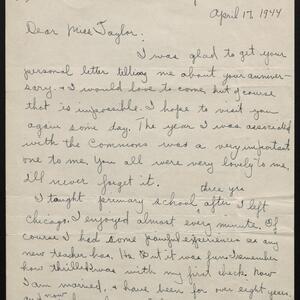 April 17, 1944
Dear Miss Taylor:
I was glad to get your
personal letter telling me about your anniver-
sary. I would love to come but of course
that is impossible. I hope to visit you
again some day. The year I was associated
with the Commons was a very important
one to me. You all were very lovely to me,
I'll never forget it.
three yrs
I taught primary school after I left
Chicago. I enjoyed almost every minute. Of
course I had some painful experiences as any
new teacher has. But it was fun. I remember
how thrilled I was with my first check. Now
I am married, & have been for over eight years,
now